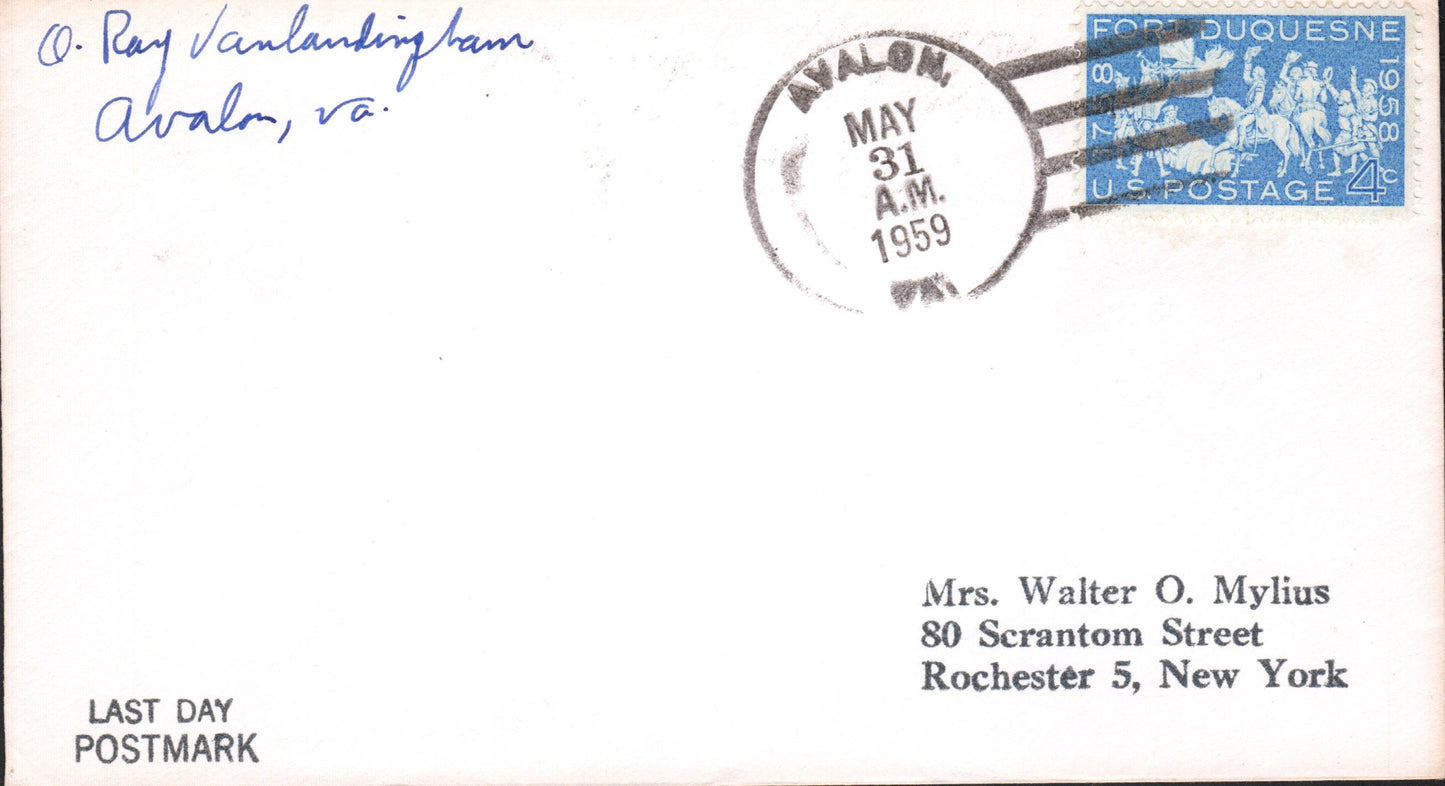 O. Ray Vanlandingham
Avalon, va.
AVALON,
MAY
31
A.M.
1959
VA.
FORT DUQUESNE
1758
1958
U.S. POSTAGE 4c
Mrs. Walter O. Mylius
80 Scrantom Street
Rochester 5, New York
LAST DAY
POSTMARK